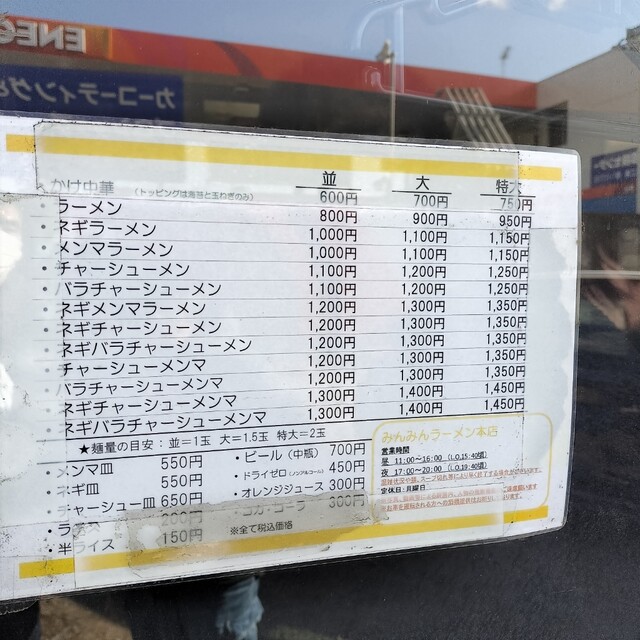 ENE
カーコーティング
並 大 特大
かけ中華 (トッピングは海苔と玉ねぎのみ) 600円 700円 750円
・ラーメン 800円 900円 950円
・ネギラーメン 1,000円 1,100円 1,150円
・メンマラーメン 1,000円 1,100円 1,150円
・チャーシューメン 1,100円 1,200円 1,250円
・バラチャーシューメン 1,100円 1,200円 1,250円
・ネギメンマラーメン 1,200円 1,300円 1,350円
・ネギチャーシューメン 1,200円 1,300円 1,350円
・ネギバラチャーシューメン 1,200円 1,300円 1,350円
・チャーシューメンマ 1,200円 1,300円 1,350円
・バラチャーシューメンマ 1,200円 1,300円 1,350円
・ネギチャーシューメンマ 1,300円 1,400円 1,450円
・ネギバラチャーシューメンマ 1,300円 1,400円 1,450円
★麺量の目安：並＝1玉 大＝1.5玉 特大＝2玉
・メンマ皿 550円
・ネギ皿 550円
・チャーシュー皿 650円
・半ライス 150円
・ビール（中瓶） 700円
・ドライゼロ（ノンアルコール） 450円
・オレンジジュース 300円
・コカ・コーラ 300円
※全て税込価格
みんみんラーメン本店
営業時間
昼 11:00～16:00 (L.O.15:40頃)
夜 17:00～20:00 (L.O.19:40頃)
定休日：月曜日